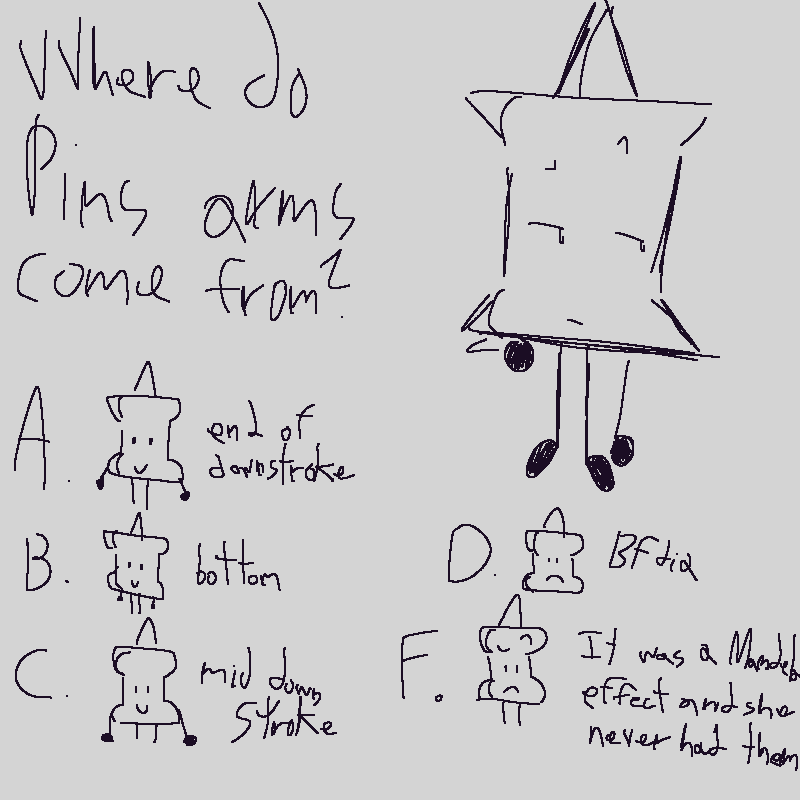 Where do
Pins arms
come from?
A.
end of
downstroke
B.
bottom
C.
mid down
stroke
D.
BFdia
F.
It was a Mandeb
effect and she
never had them